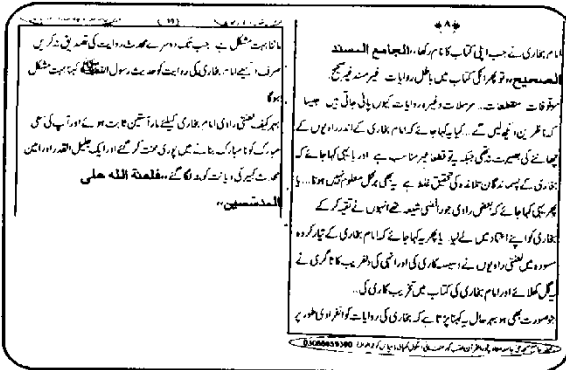 ﴿۸﴾
امام بخاری نے جب اپنی کتاب کا نام رکھا ،،الجامع المسند
الصحیح،، تو پھر اس کتاب میں باطل روایات غیر مسند غیر صحیح
موقوفات مقطعات.. مرسلات وغیرہ روایات کیوں پائی جاتی ہیں جیسا
کہ ناظرین دیکھ لیں گے.. کیا یہ کہا جائے کہ امام بخاری کے اندر راویوں کے
چھاننے کی بصیرت نہ تھی جبکہ یہ تو قطعاً غیر مناسب ہے اور یا یہی کہا جائے کہ
بخاری کے پسماندگان تلامذہ کی تحقیق غلط ہے یہ بھی برمحل معلوم نہیں ہوتا... یا
پھر یہی کہا جائے کہ بعض راوی جو رافضی شیعہ تھے انہوں نے تقیہ کر کے
بخاری کو اپنے اعتماد میں لے لیا یا پھر یہ کہا جائے کہ امام بخاری کے تیار کردہ
مسودہ میں لعنتی راویوں نے دسیسہ کاری کی اور انہی کی دلفریب کاریگری نے
یہ گل کھلائے اور امام بخاری کی کتاب میں تخریب کاری کی..
جو صورت بھی ہو بہر حال یہ کہنا پڑتا ہے کہ بخاری کی روایات کو انفرادی طور پر
03088659390
ماننا بہت مشکل ہے جب تک دوسرے محدث روایت کی تصدیق نہ کریں
صرف اکیلے امام بخاری کی روایت کو حدیث رسول ﷺ کہنا بہت مشکل
ہوگا
بہر کیف لعنتی راوی امام بخاری کیلئے مار آستین ثابت ہوئے اور آپ کی سعی
مبارک کو نامبارک بنانے میں پوری محنت کر گئے اور ایک جلیل القدر اور امین
محدث کبیر کی دیانت کو بٹہ لگا گئے ،،فلعنۃ اللہ علی
المدسسین،،